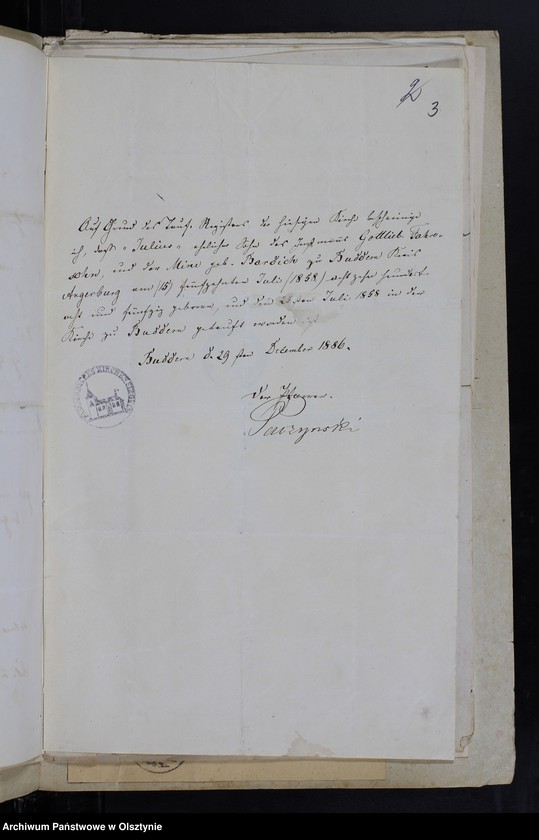 2
3
Auf Grund des Tauf-Registers der hiesigen Kirche bescheinige
ich, daß "Julius" ehelicher Sohn des Instmann Gottlieb Fahro-
sohn, und der Mine geb. Bardich zu Buddern Kreis
Angerburg am (15) fünfzehnten Juli (1858) achtzehn hundert
acht und fünfzig geboren, und den 25ten Juli 1858 in der
Kirche zu Buddern getauft worden ist.
Buddern d. 29sten Dezember 1886.
Der Pfarrer.
Paczynski
Archiwum Państwowe w Olsztynie